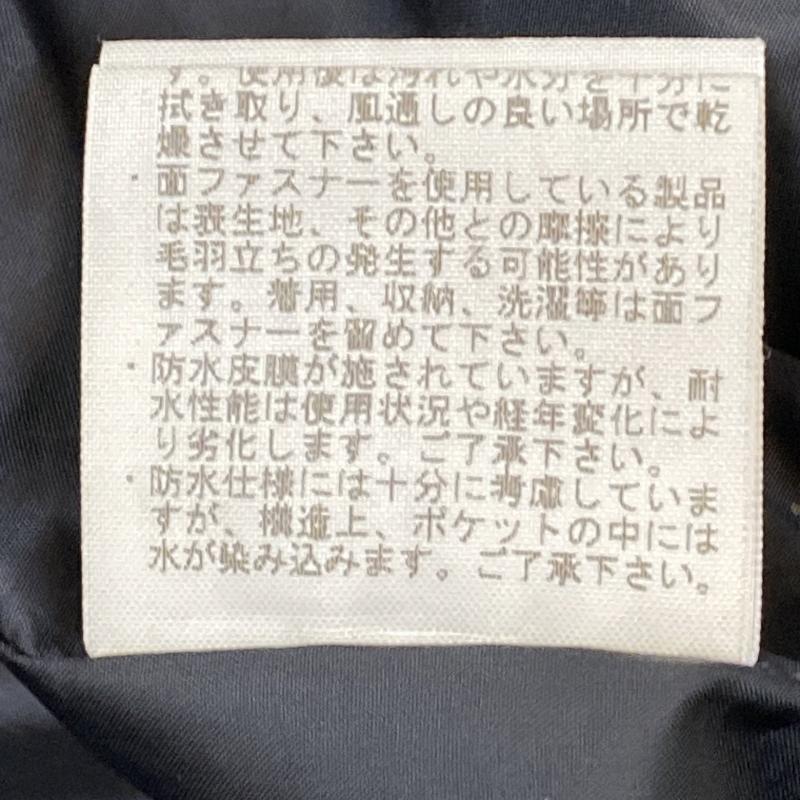 す。使用後は汚れや水分を十分に
拭き取り、風通しの良い場所で乾
燥させて下さい。
・面ファスナーを使用している製品
は表生地、その他との摩擦により
毛羽立ちの発生する可能性があり
ます。着用、収納、洗濯等は面フ
ァスナーを留めて下さい。
・防水皮膜が施されていますが、耐
水性能は使用状況や経年変化によ
り劣化します。ご了承下さい。
・防水仕様には十分に考慮していま
すが、構造上、ポケットの中には
水が染み込みます。ご了承下さい。